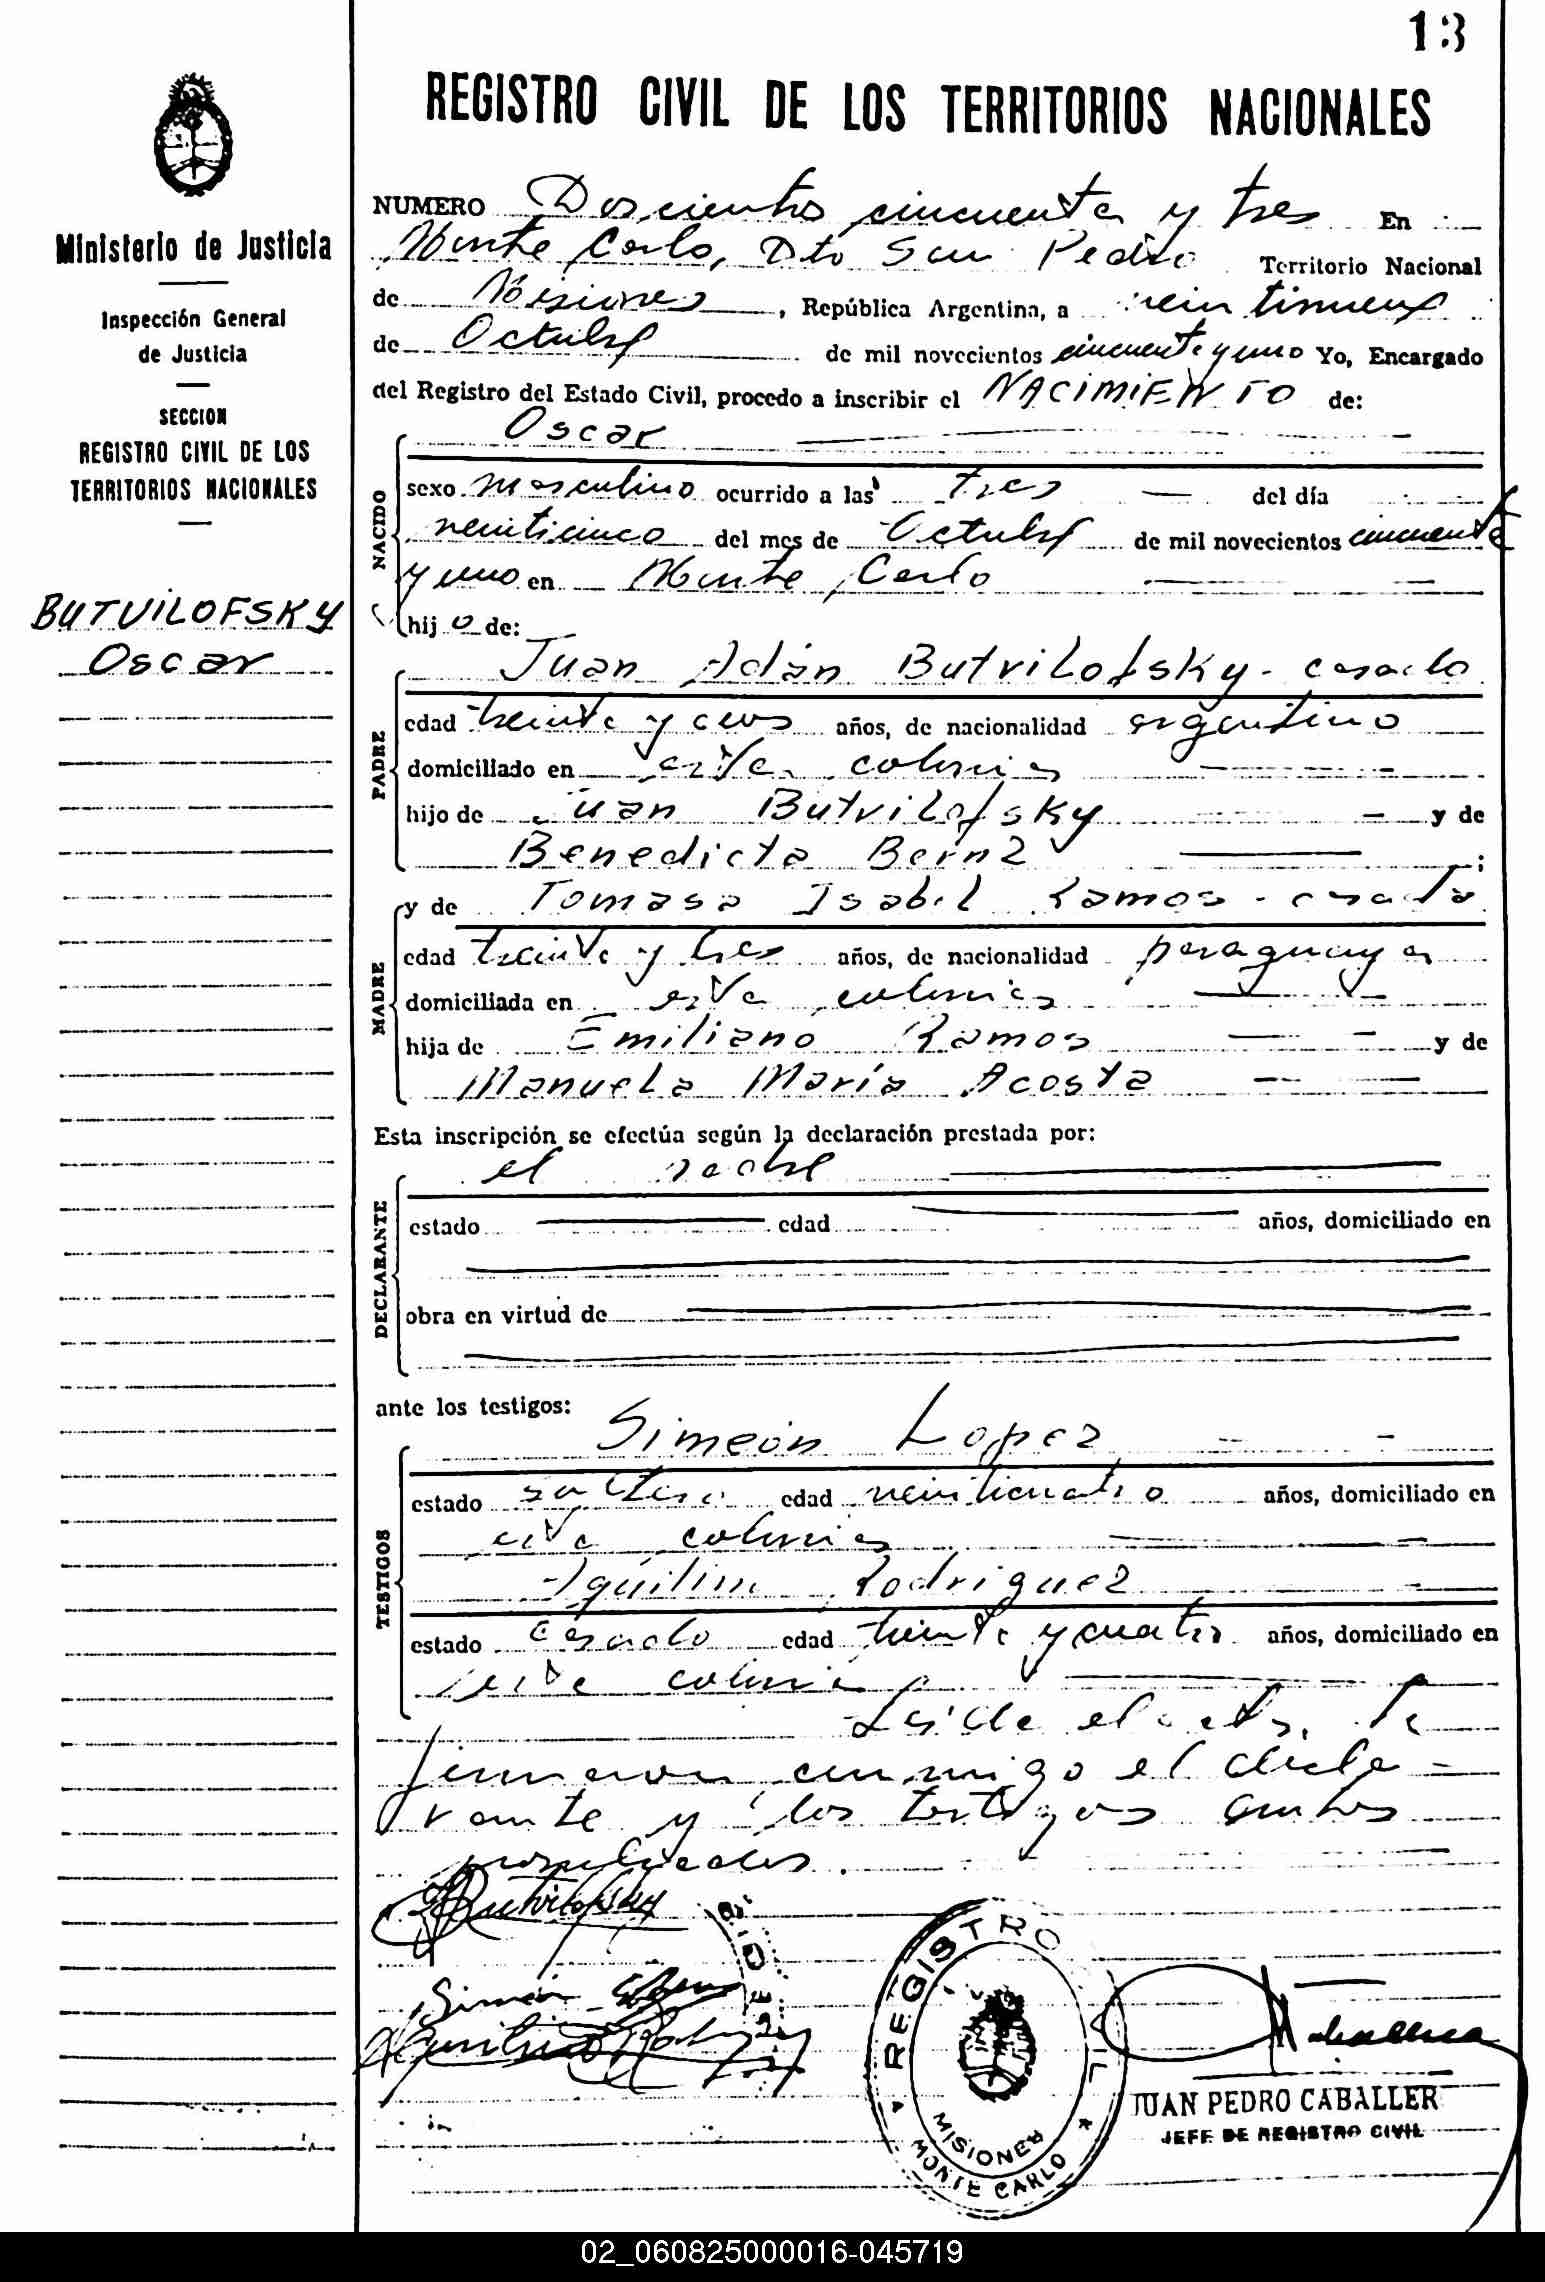 13
REGISTRO CIVIL DE LOS TERRITORIOS NACIONALES
Ministerio de Justicia
Inspección General
de Justicia
SECCION
REGISTRO CIVIL DE LOS
TERRITORIOS NACIONALES
BUTVILOFSKY
Oscar
NUMERO Doscientos cincuenta y tres En
Monte Carlo, Dto San Pedro Territorio Nacional
de Misiones, República Argentina, a veintinueve
de Octubre de mil novecientos cincuenta y uno Yo, Encargado
del Registro del Estado Civil, procedo a inscribir el NACIMIENTO de:
Oscar
NACIDO
sexo masculino ocurrido a las tres del día
veinticinco del mes de Octubre de mil novecientos cincuenta
y uno en Monte Carlo
hijo de:
Juan Adán Butvilofsky - casado
PADRE
edad treinta y años, de nacionalidad argentino
domiciliado en esta colonia
hijo de Juan Butvilofsky y de
Benedicta Bernz;
y de Tomasa Isabel Ramos - casada
MADRE
edad treinta y tres años, de nacionalidad paraguaya
domiciliada en esta colonia
hija de Emiliano Ramos y de
Manuela María Acosta
Esta inscripción se efectúa según la declaración prestada por:
el padre
DECLARANTE
estado edad años, domiciliado en
obra en virtud de
ante los testigos:
Simeón Lopez
TESTIGOS
estado soltero edad veinticuatro años, domiciliado en
esta colonia
Aquilino Rodriguez
estado casado edad treinta y cuatro años, domiciliado en
esta colonia
Leída el acta, la
firmaron conmigo el decla-
rante y los testigos ambos
Butvilofsky
Simeón
Aquilino
REGISTRO CIVIL
MISIONES
MONTE CARLO
JUAN PEDRO CABALLER
JEFE DE REGISTRO CIVIL
02_060825000016-045719